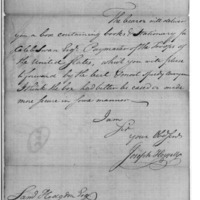 The bearer will deliver
you a box containing books & Stationary for
Caleb Swan Esqr. Paymaster of the troops of
the United States, which you will please
forward by the first
I think the box had better be cased or made
more secure in some manner
I am
Sir
your Obed.
Joseph Howell
Saml Hodgdon Esqr